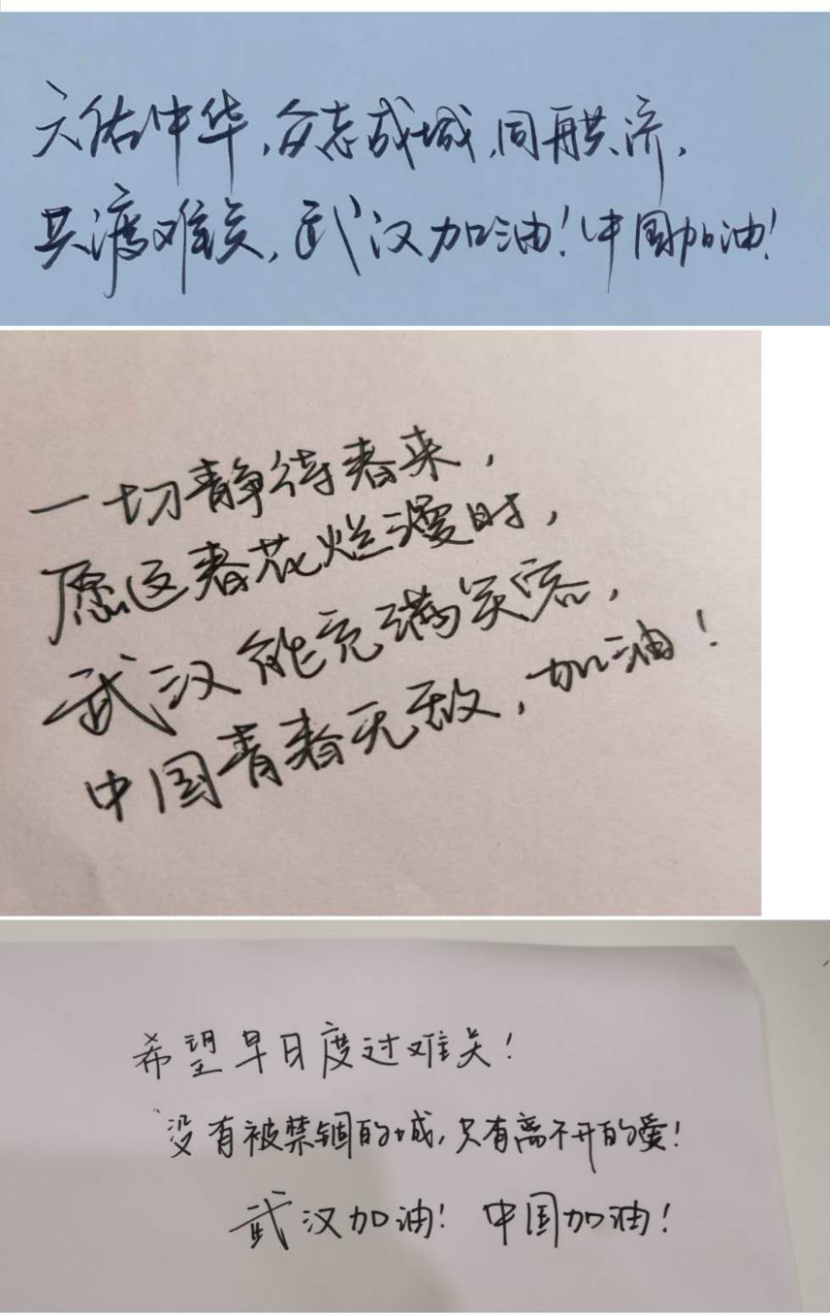 天佑中华,众志成城,同舟共济,
共渡难关,武汉加油!中国加油!
一切静待春来,
愿这春花烂漫时,
武汉能充满笑容,
中国青春无敌,加油!
希望早日度过难关!
没有被禁锢的城,只有离不开的爱!
武汉加油!中国加油!